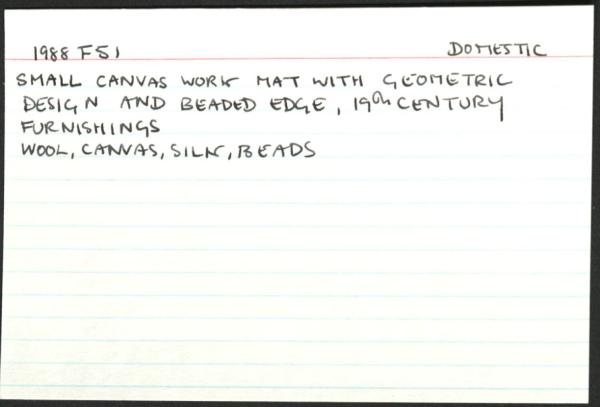 1988 F51 DOMESTIC
SMALL CANVAS WORK MAT WITH GEOMETRIC
DESIGN AND BEADED EDGE, 19th CENTURY
FURNISHINGS
WOOL, CANVAS, SILK, BEADS